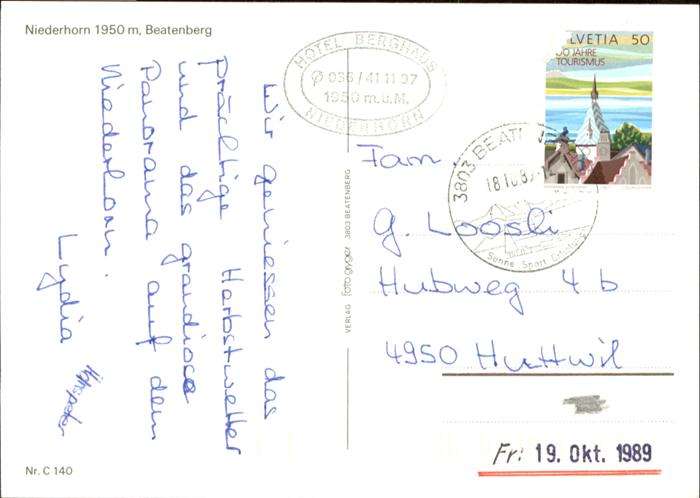 Niederhorn 1950 m, Beatenberg
Wir geniessen das
prächtige Herbstwetter
und das grandiose
Panorama auf dem
Niederhorn.
Lydia
Hanspeter
Nr. C 140
HOTEL BERGHAUS
036/41 11 97
1950 m.ü.M.
NIEDERHORN
VERLAG foto geiger 3803 BEATENBERG
HELVETIA 50
TOURISMUS
3803 BEATENBERG
Fam
G. Loosli
Hubweg 4 b
4950 Huttwil
Fr: 19. Okt. 1989